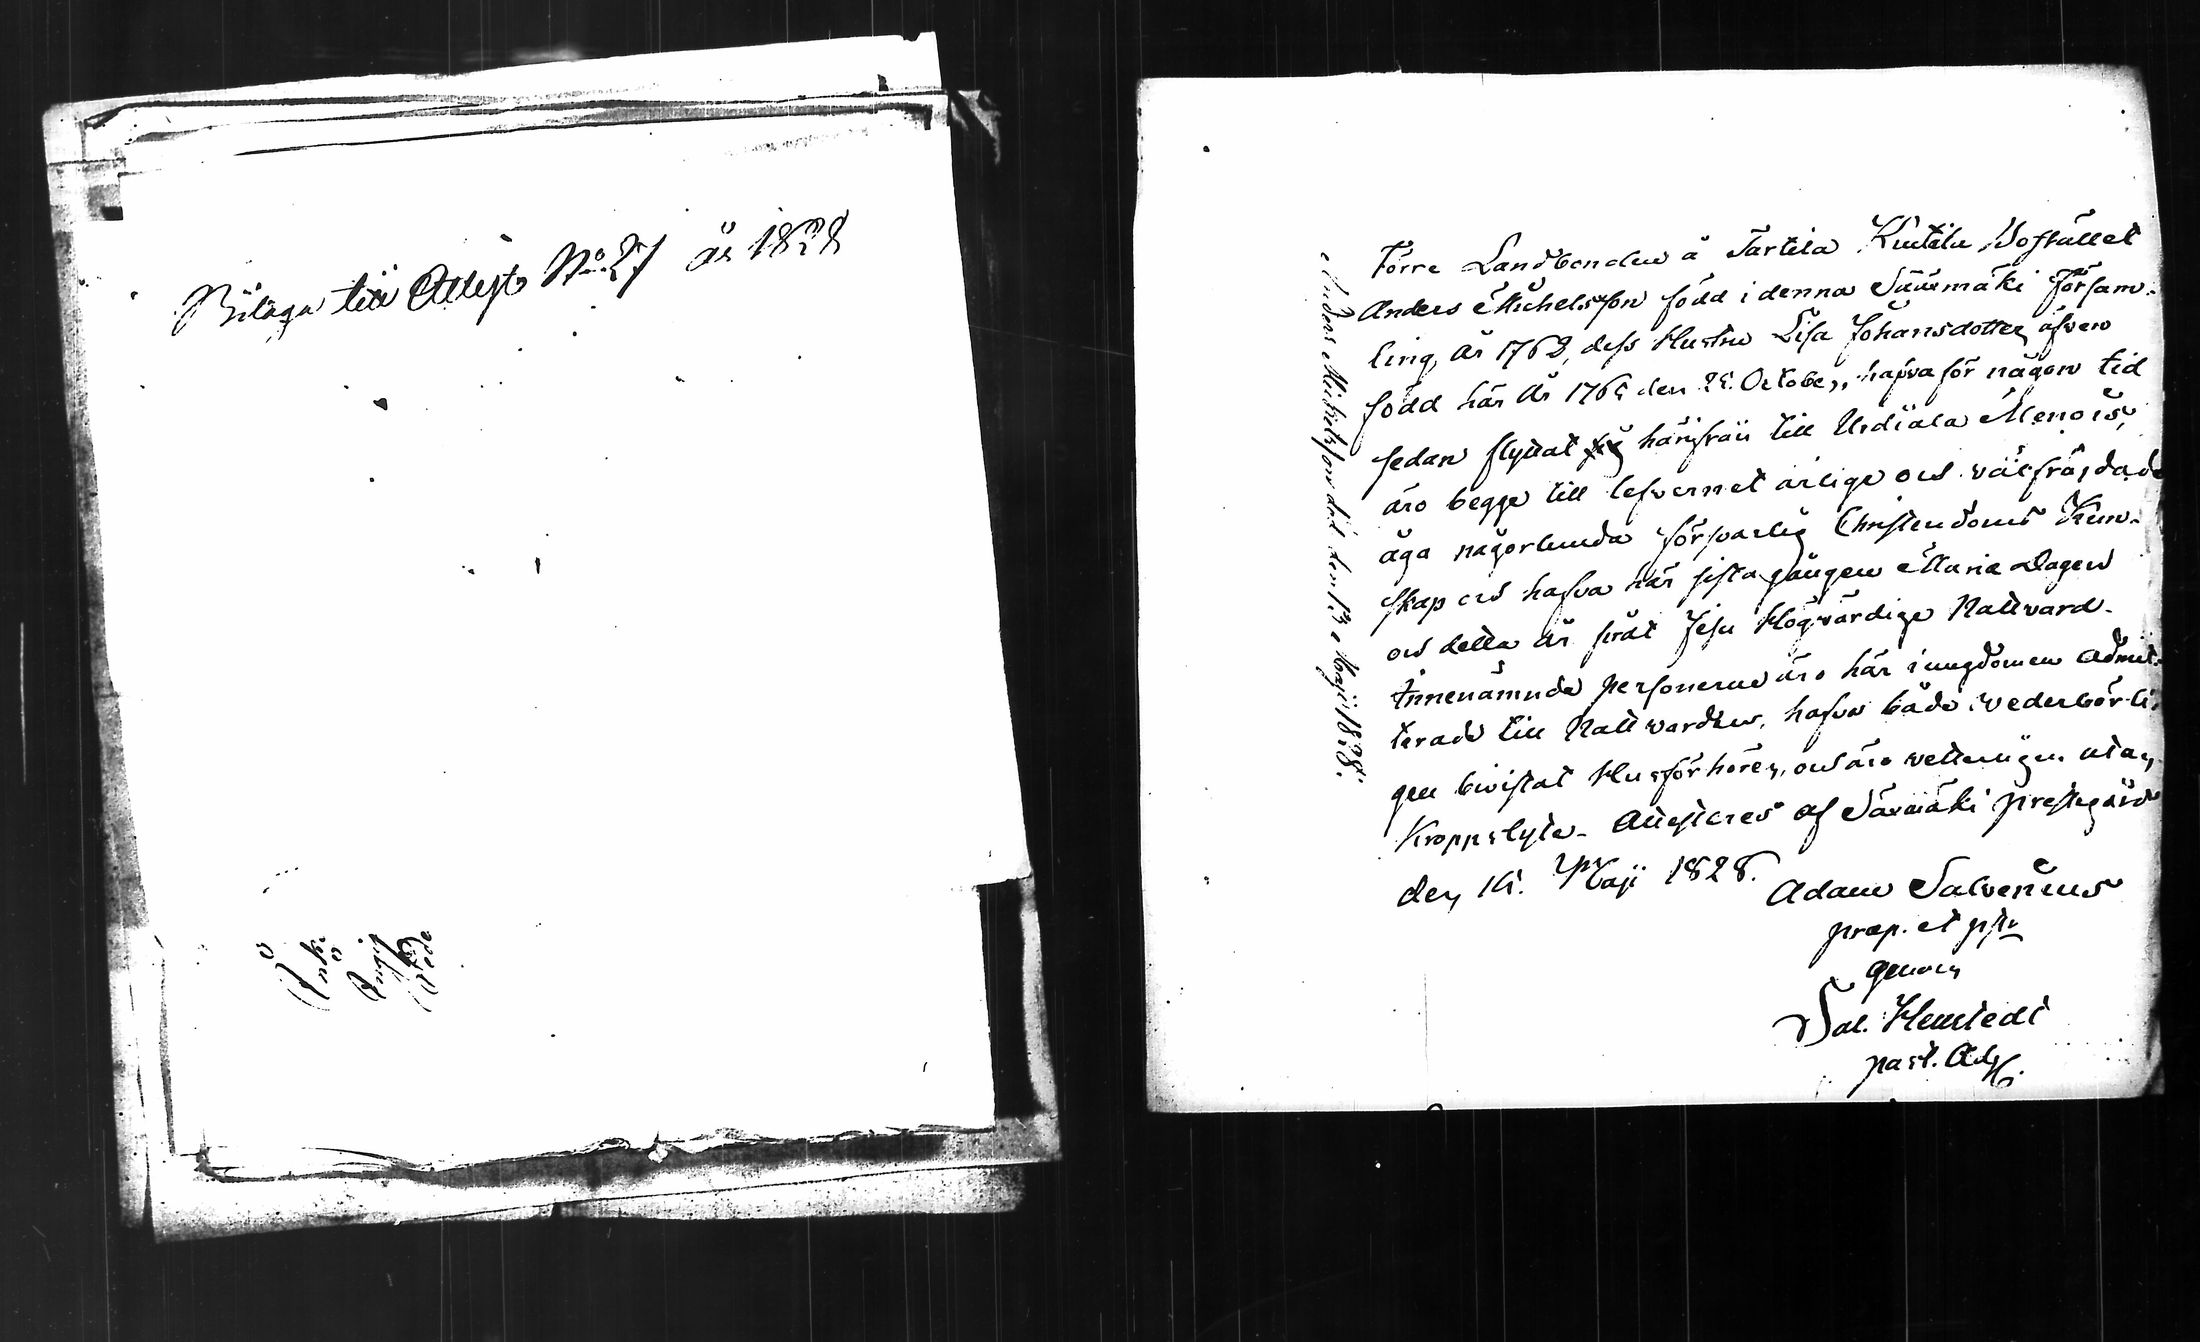 Bilaga till Attest No 27 år 1828
Förre Landbonden å Tarttila Kurtila Bostället
Anders Michelsson född i denna Sääxmäki Försam-
ling, År 1762, dess Hustru Lisa Johansdotter äfven
född här År 1765 den 25 October, hafva för någon tid
sedan flyttat härifrån till Urdiala Menois,
äro begge till lefvernet ärlige och välfräjdade
äga någorlunda försvarlig Christendoms Kun-
skap och hafva här sista gången Mariæ Dagen
och detta År firat Jesu Högvärdige Nattvard.
Finnenämnde personerne äro här i ungdomen Admit-
terade till Nattvarden, hafva både vederbörli-
gen bivistat Husförhören, och äro vetterligen utan
Kroppslyte. Attesteres af Sääxmäki Prestegård
den 16. Maji 1828.
Adam Salvenius
præp. et pstr
genom
Sal. Henstedt
past. Adj.
Anders Michelsson död den 13 Maji 1838.